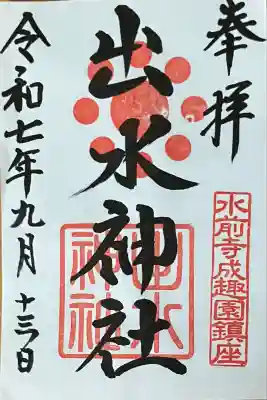 奉拝
水前寺成趣園鎮座
出水神社
出水神社
令和七年九月十三日